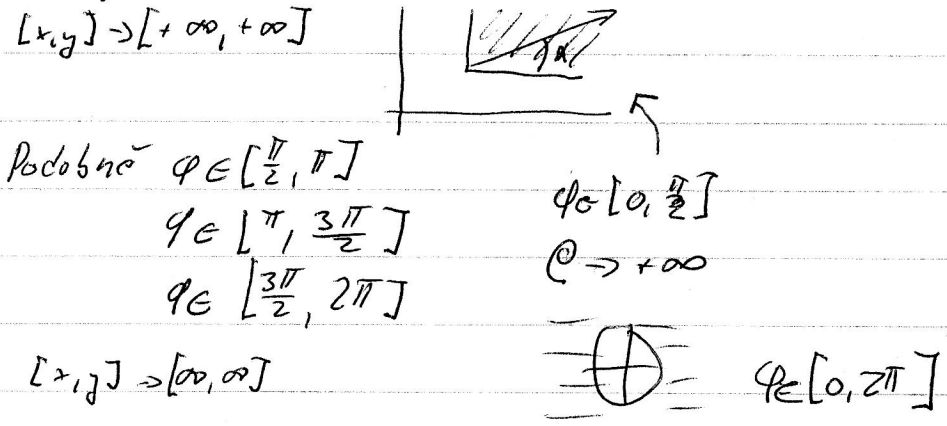 [x,y] → [+∞, +∞]
α
Podobně φ ∈ [π/2, π]
φ ∈ [π, 3π/2]
φ ∈ [3π/2, 2π]
φ ∈ [0, π/2]
ρ → +∞
[x,y] → [∞, ∞]
φ ∈ [0, 2π]